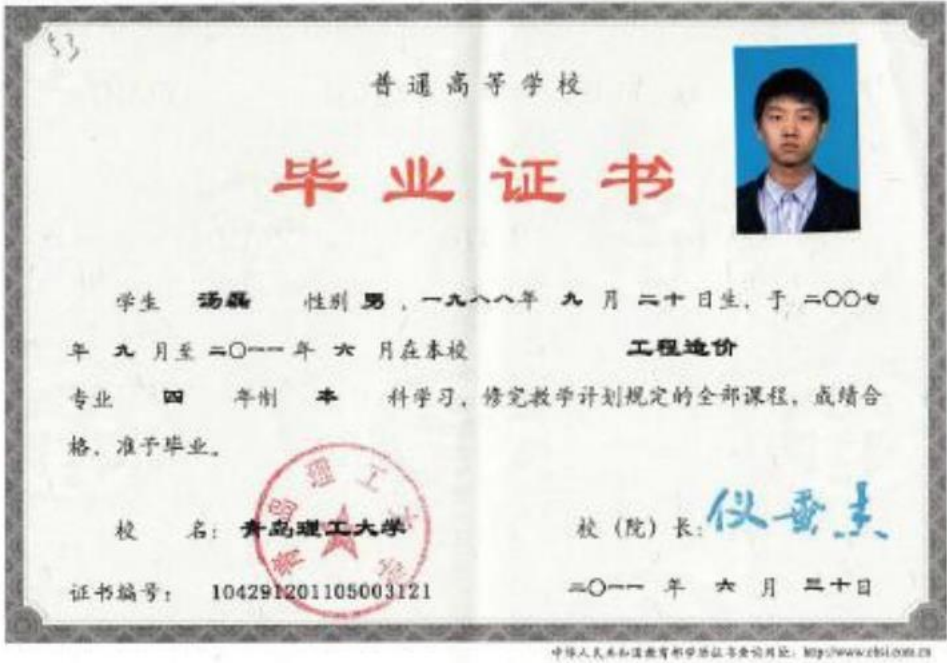 53
普通高等学校
毕业证书
学生 汤磊 性别 男，一九八八年 九 月 二十日生，于 二〇〇七
年 九 月至 二〇一一 年 六 月在本校 工程造价
专业 四 年制 本 科学习，修完教学计划规定的全部课程，成绩合
格，准予毕业。
青岛理工大学
校 名：青岛理工大学 校（院）长：仪垂杰
证书编号： 104291201105003121 二〇一一 年 六 月 三十日
中华人民共和国教育部学历证书查询网址：http://www.chsi.com.cn